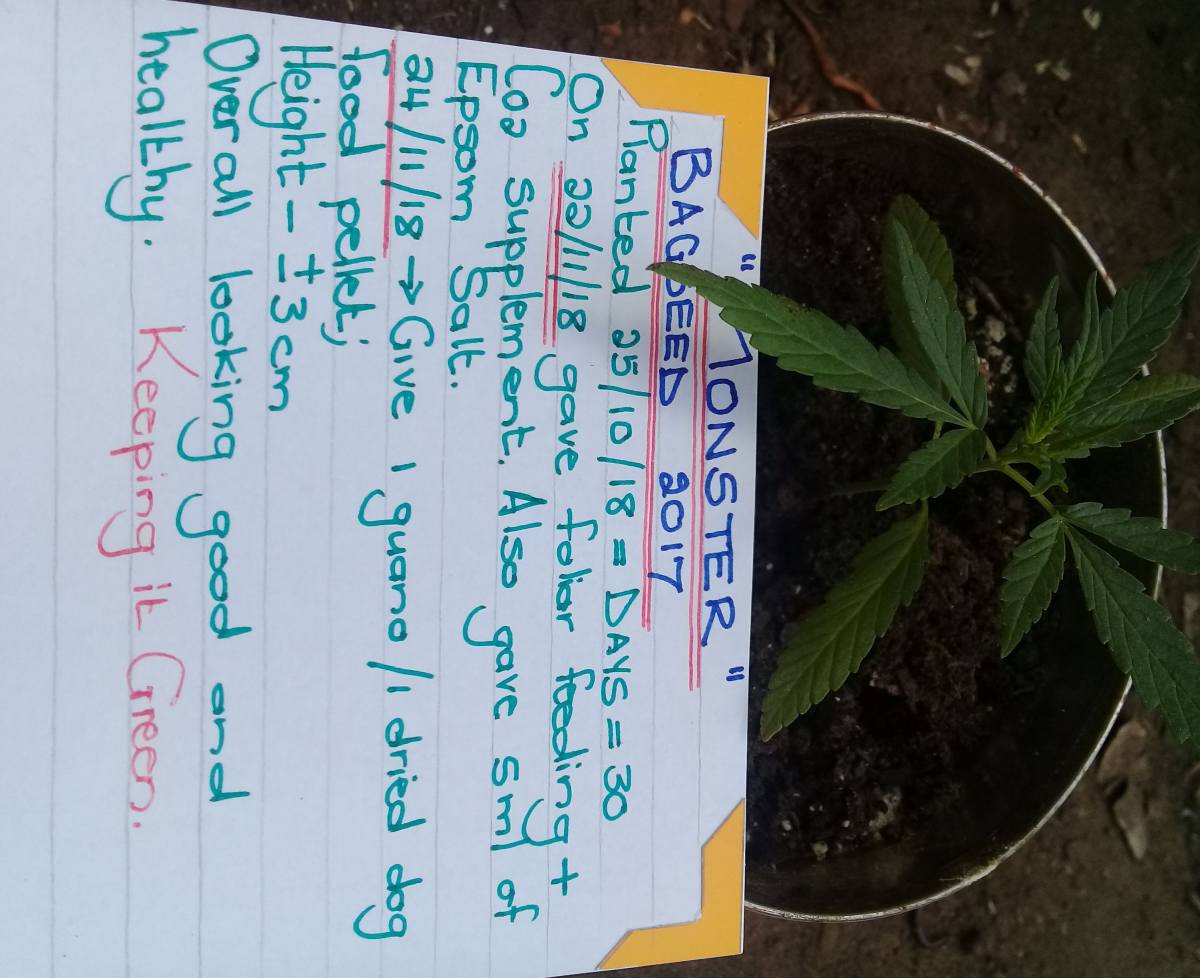 "MONSTER"
BAGSEED 2017
Planted 25/10/18 = DAYS = 30
On 22/11/18 gave foliar feeding +
Co2 Supplement. Also gave 5ml of
Epsom Salt.
24/11/18 → Give 1 guano / 1 dried dog
food pellet;
Height - ± 3cm
Over all looking good and
healthy. Keeping it Green.